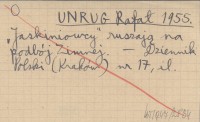 UNRUG Rafał 1955.
"Jaskiniowcy ruszają na
podbój Zimnej. — Dziennik
Polski (Kraków) nr 17, il.